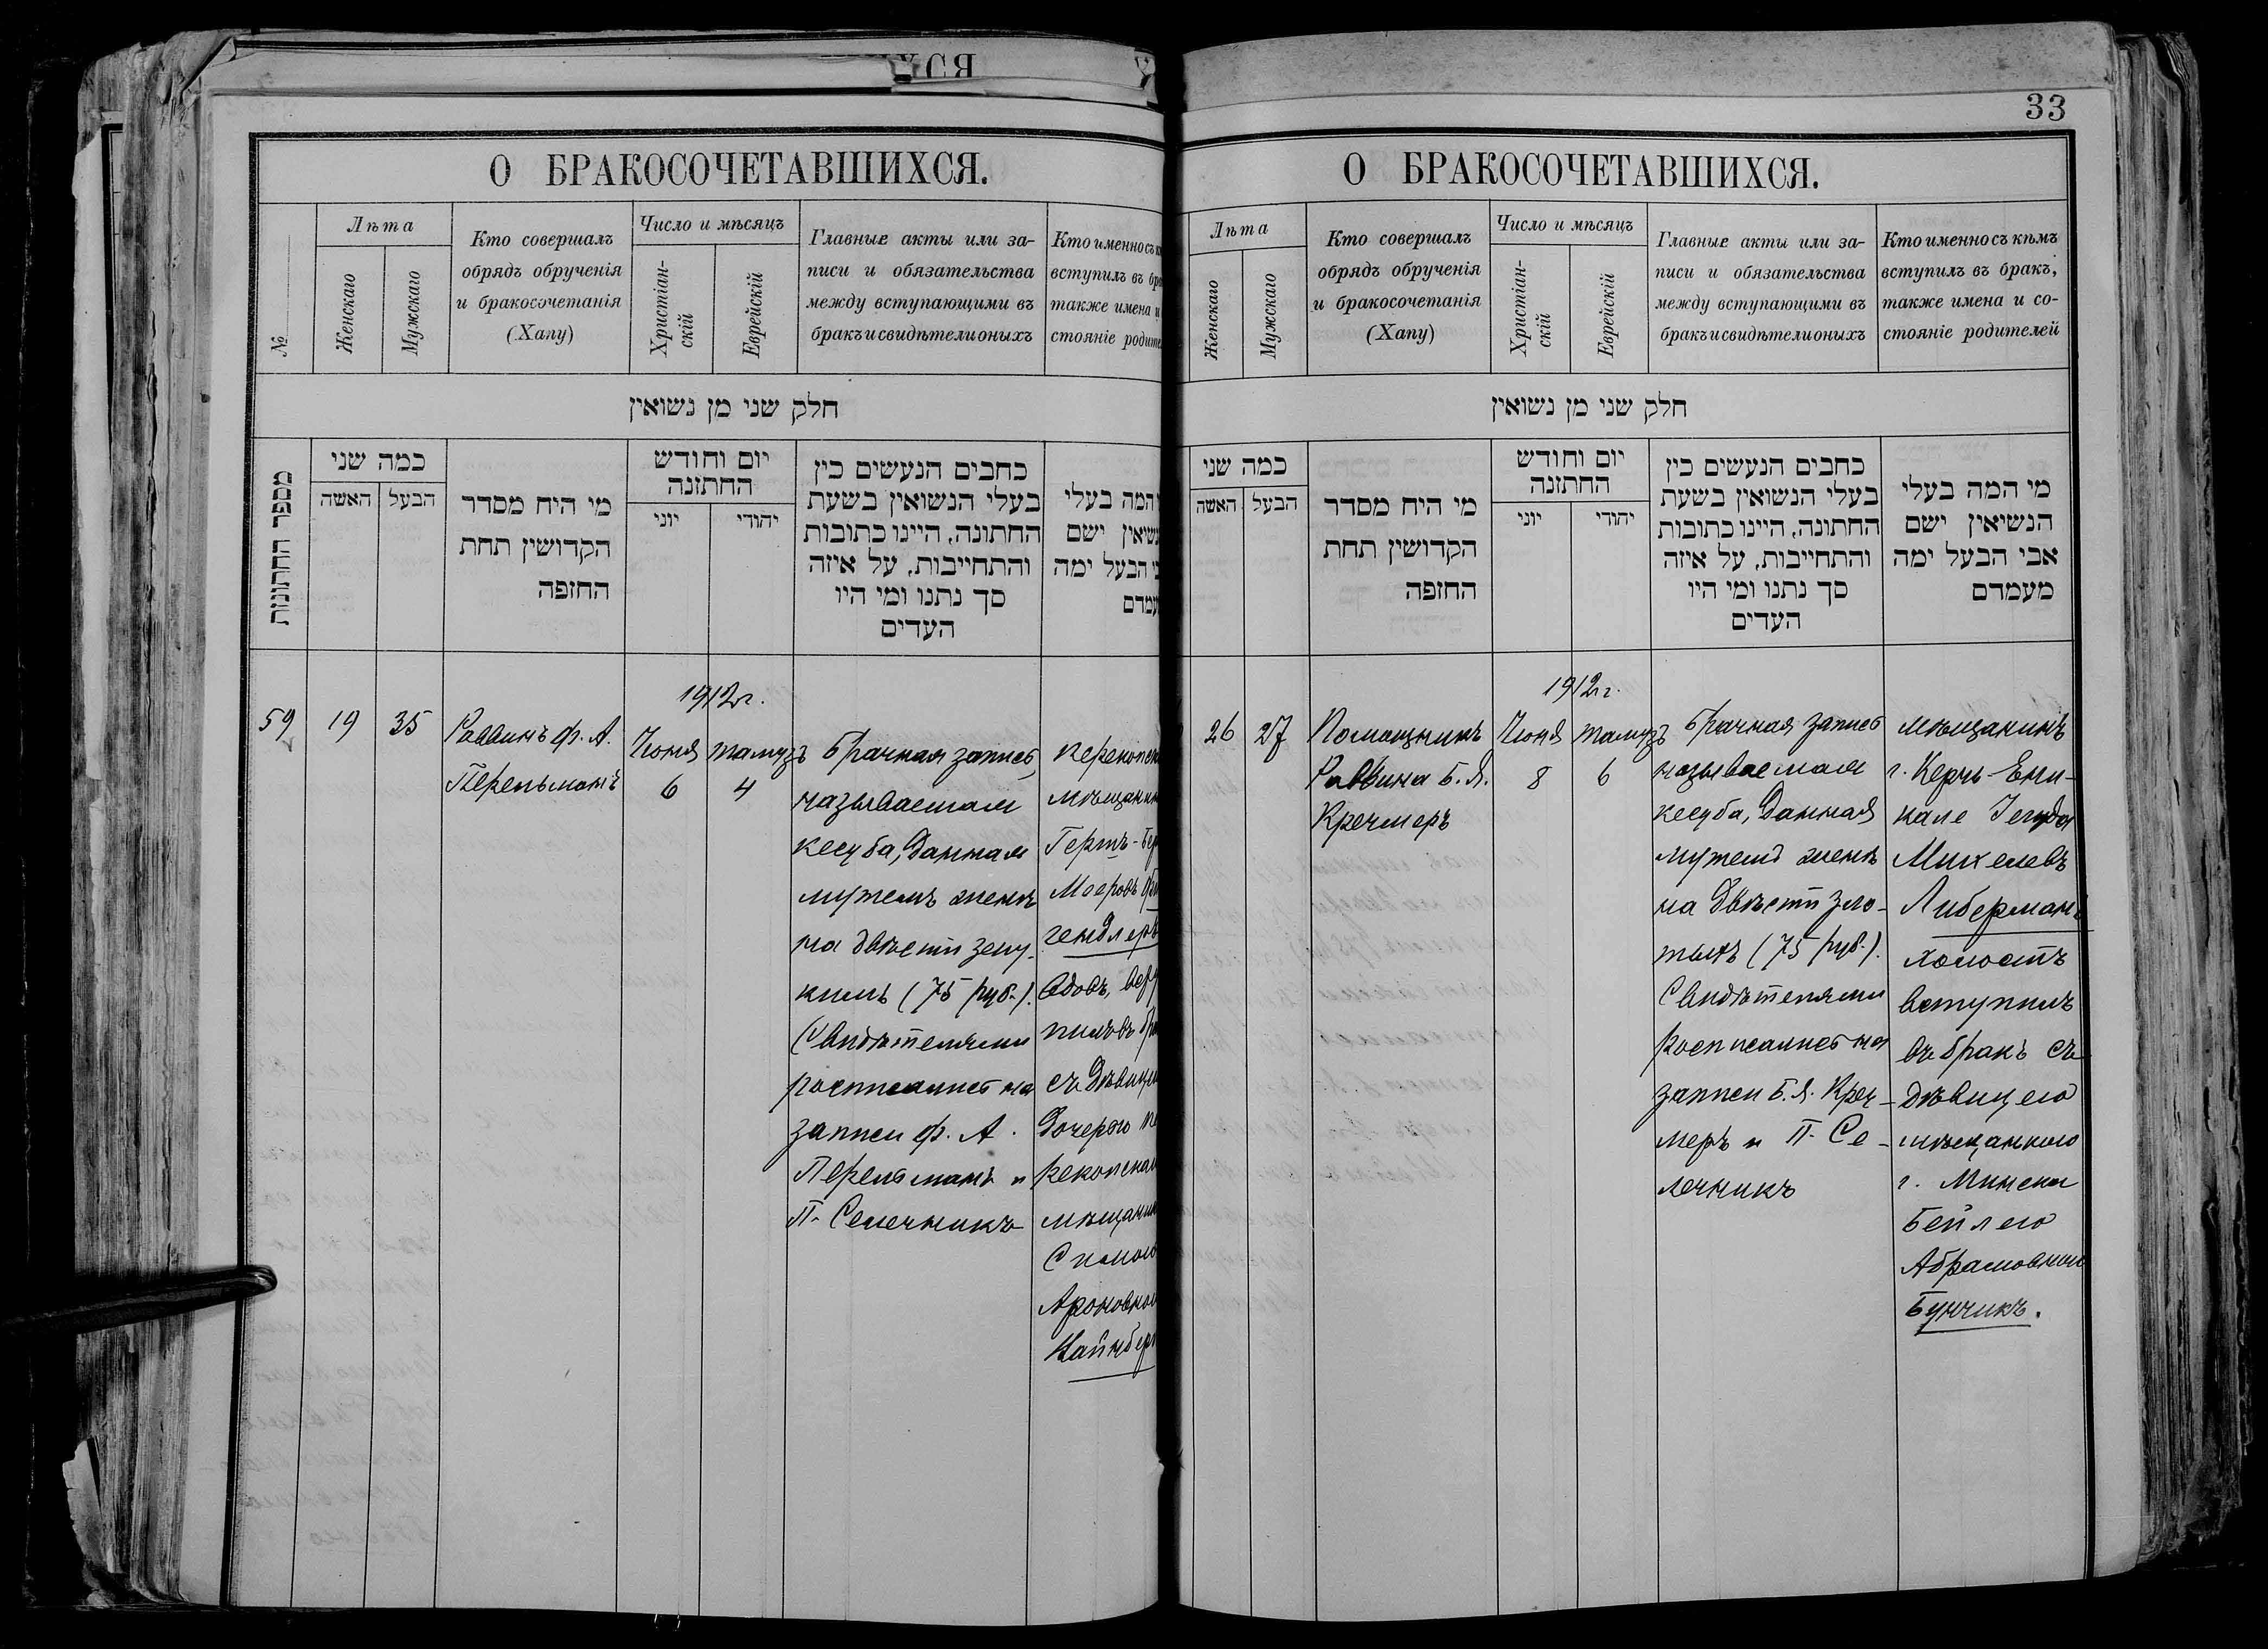 ХСЯ
33
О БРАКОСОЧЕТАВШИХСЯ.
№
Лѣта
Женскаго
Мужскаго
Кто совершалъ
обрядъ обрученія
и бракосочетанія
(Хапу)
Число и мѣсяцъ
Христіан-
скій
Еврейскій
Главные акты или за-
писи и обязательства
между вступающими въ
бракъ и свидѣтели оныхъ
Кто именно съ
вступилъ въ
также имена
стояніе
חלק שני מן נשואין
מספר החתונות
כמה שני
האשה
הבעל
מי היח מסדר
הקדושין תחת
החופה
יום וחודש
החתונה
יוני
יהודי
כתבים הנעשים כין
בעלי הנשואין בשעת
החתונה, היינו כתובות
והתחייבות, על איזה
סך נתנו ומי היו
העדים
המה בעלי
ישם
הבעל ימה
59
19
35
Раввинъ Ф. А.
Перельманъ
1912 г.
Іюня
6
тамузъ
4
Брачная запись,
называемая
кесуба, данная
мужемъ женѣ
на двѣсти зену-
кимъ (75 руб.).
Свидѣтелями
росписались на
записи Ф. А.
Перельманъ и
П. Селечникъ
Герть-
Мееровъ
гендлеръ
вдовъ,
съ
дочерью
Ароновной
О БРАКОСОЧЕТАВШИХСЯ.
Лѣта
Женскаго
Мужскаго
Кто совершалъ
обрядъ обрученія
и бракосочетанія
(Хапу)
Число и мѣсяцъ
Христіан-
скій
Еврейскій
Главные акты или за-
писи и обязательства
между вступающими въ
бракъ и свидѣтели оныхъ
Кто именно съ кѣмъ
вступилъ въ бракъ,
также имена и со-
стояніе родителей
חלק שני מן נשואין
כמה שני
האשה
הבעל
מי היח מסדר
הקדושין תחת
החופה
יום וחודש
החתונה
יוני
יהודי
כתבים הנעשים כין
בעלי הנשואין בשעת
החתונה, היינו כתובות
והתחייבות, על איזה
סך נתנו ומי היו
העדים
מי המה בעלי
הנשיאין ישם
אבי הבעל ימה
מעמדם
26
27
Помощникъ
Раввина Б. Я.
Кречмеръ
1912 г.
Іюня
8
тамузъ
6
Брачная запись
называемая
кесуба, данная
мужемъ женѣ
на двѣсти зло-
тыхъ (75 руб.).
Свидѣтелями
росписались на
записи Б. Я. Креч-
меръ и П. Се-
лечникъ
мѣщанинъ
г. Керчь-Ени-
кале Іегуда
Михелевъ
Либерманъ
холостъ
вступилъ
въ бракъ съ
дѣвицею
мѣщанкою
г. Минска
Бейлею
Абрамовною
Бунчикъ.